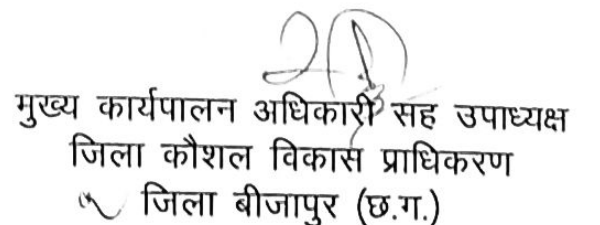 मुख्य कार्यपालन अधिकारी सह उपाध्यक्ष
जिला कौशल विकास प्राधिकरण
जिला बीजापुर (छ.ग.)